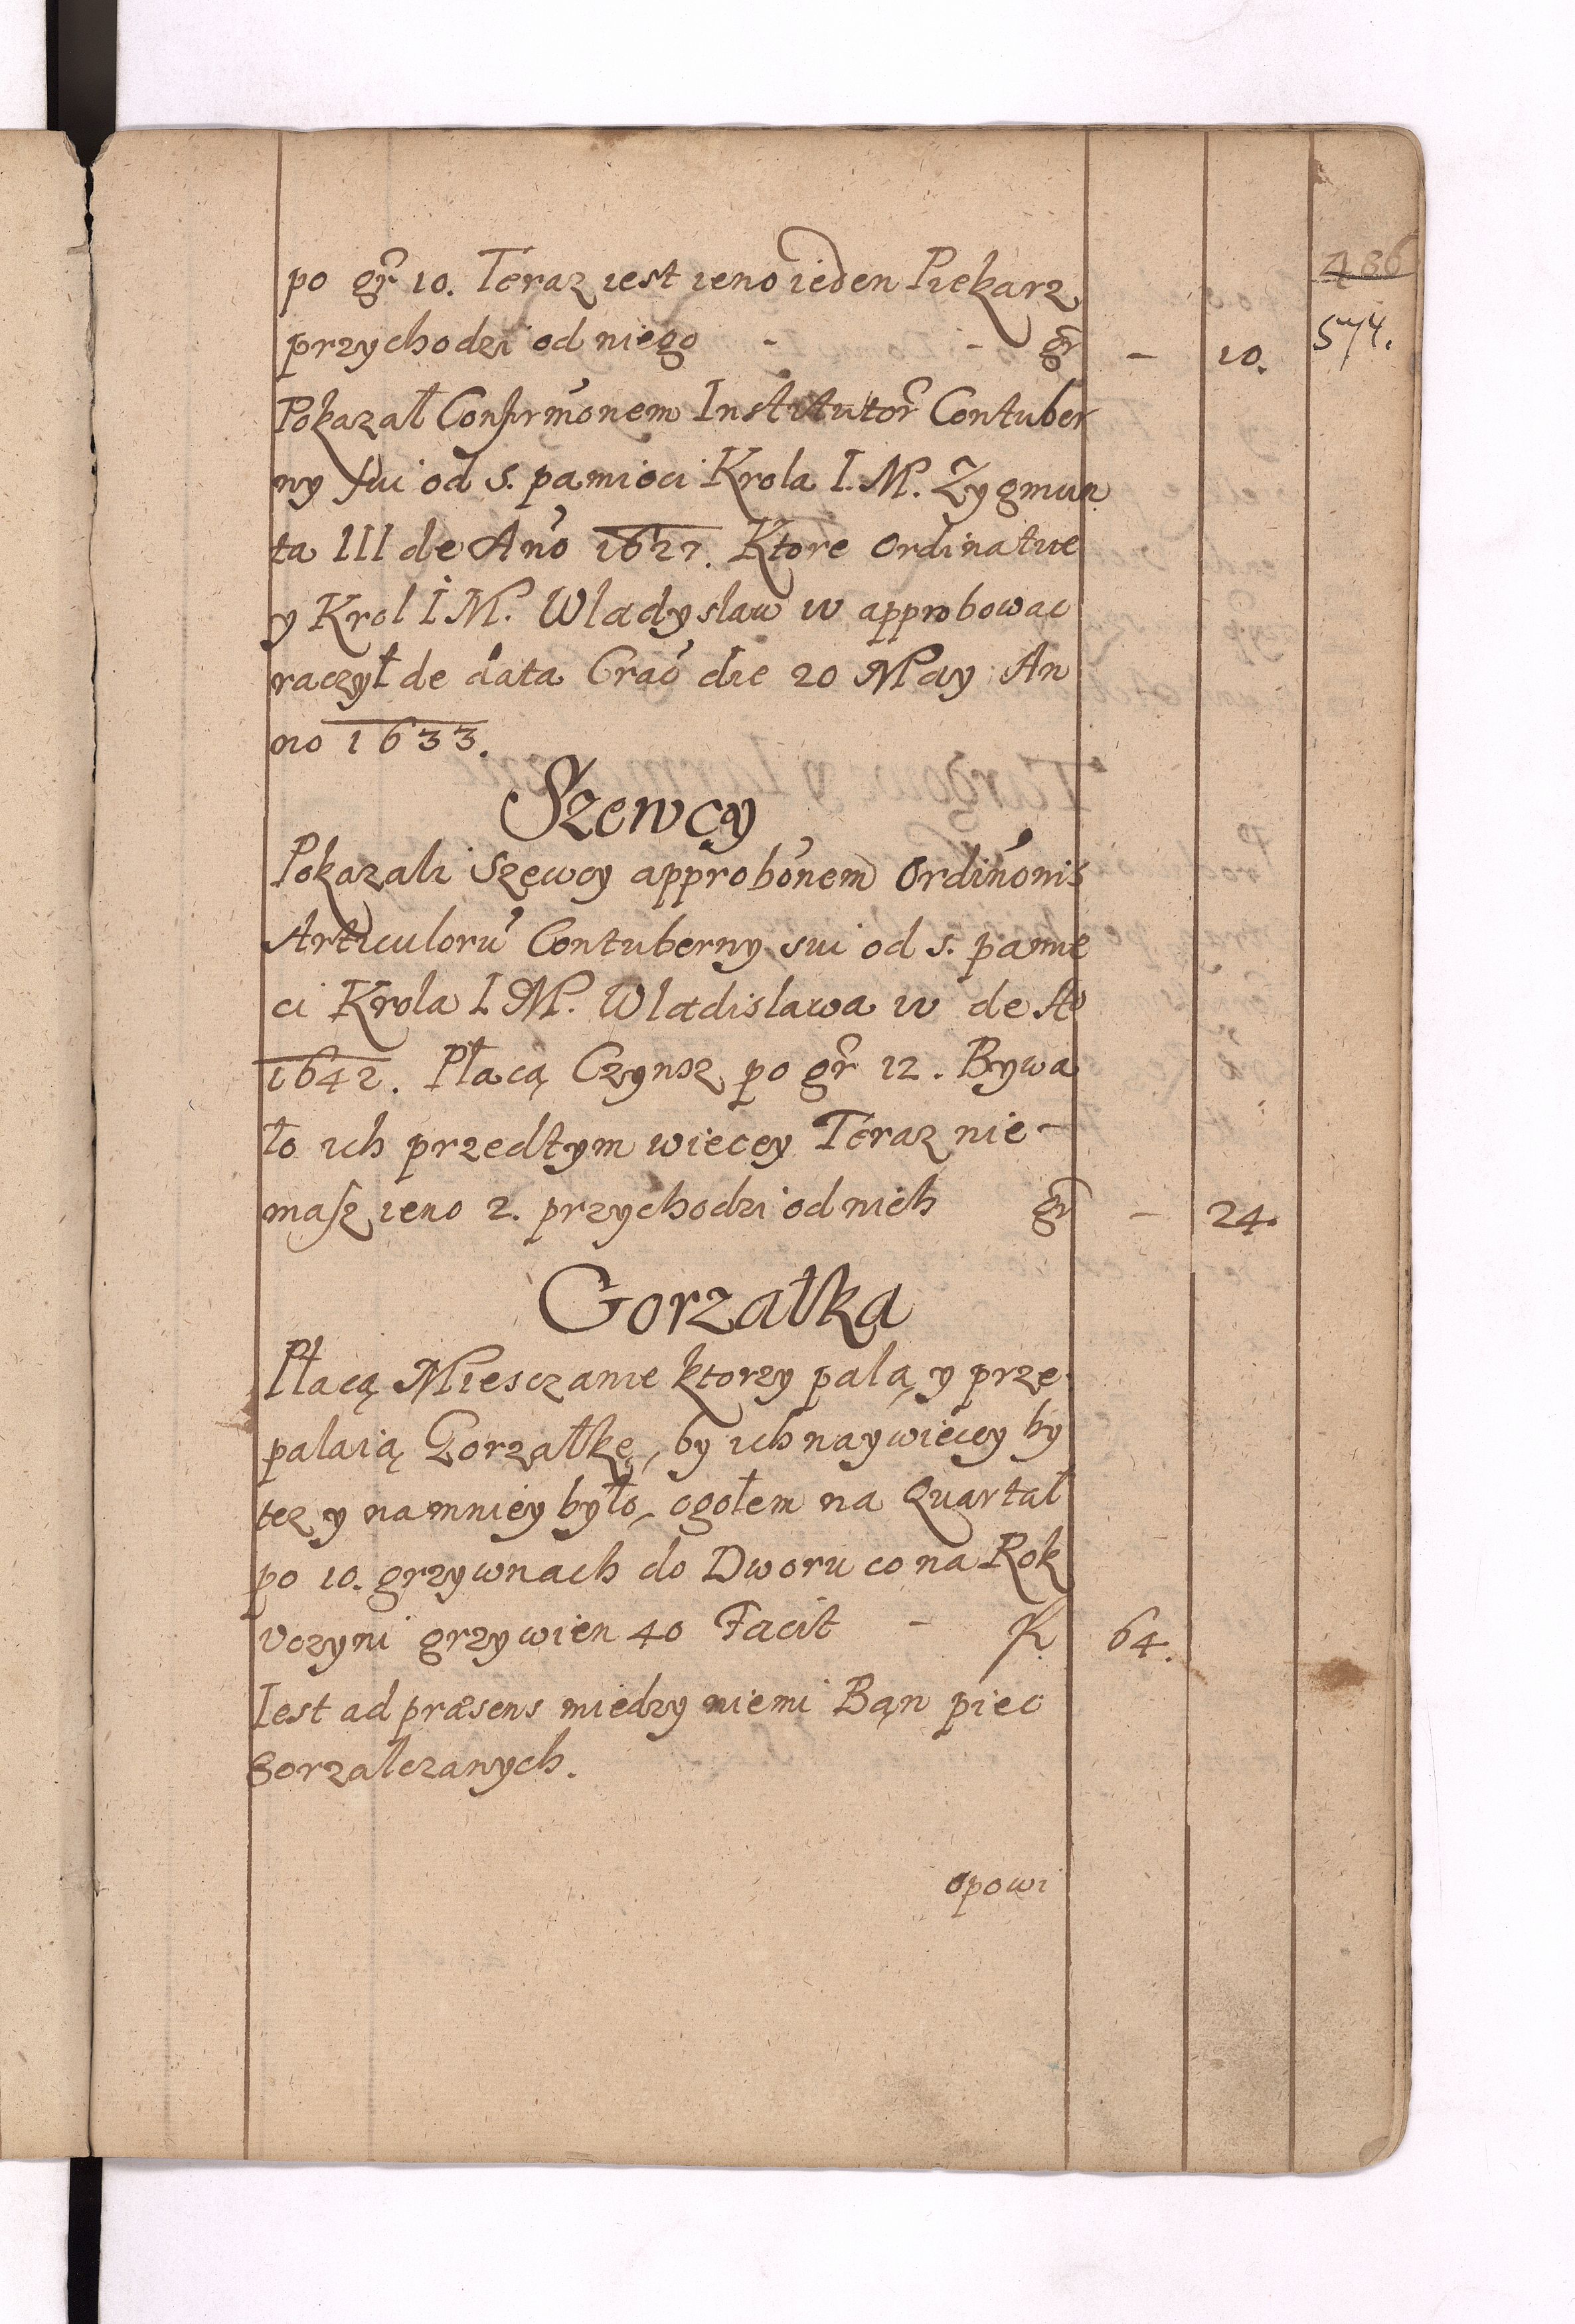 486
574.
po gr 10. Teraz iest ieno ieden Piekarz
przychodzi od niego - - gr - 10.
Pokazał Confirmonem Institutor Contuber
ny sui od s. pamieci Krola I. M. Zygmun
ta III de Ano 1627. Ktore ordinatie
y Krol I M. Wladyslaw IV approbowac
raczył de data Crac die 20 May An
no 1633.
Szewcy
Pokazali Szewcy approbonem Ordinonis
Articuloru Contuberny sui od s. pamie
ci Krola I M. Wladislawa IV de Ao
1642. Płacą Czynsz po gr 12. Bywa
ło ich przedtym wiecey Teraz nie-
masz ieno 2. przychodzi od nich gr - 24.
Gorzałka
Płacą Miesczanie ktorzy palą y prze
palaią Gorzałkę, by ich naywiecey by
tez y namniey było, ogołem na Quartał
po 10. grzywnach do Dworu co na Rok
vczyni grzywien 40 Facit - fl. 64.
Iest ad præsens miedzy niemi Bąn piec
Gorzalczanych.
opowi